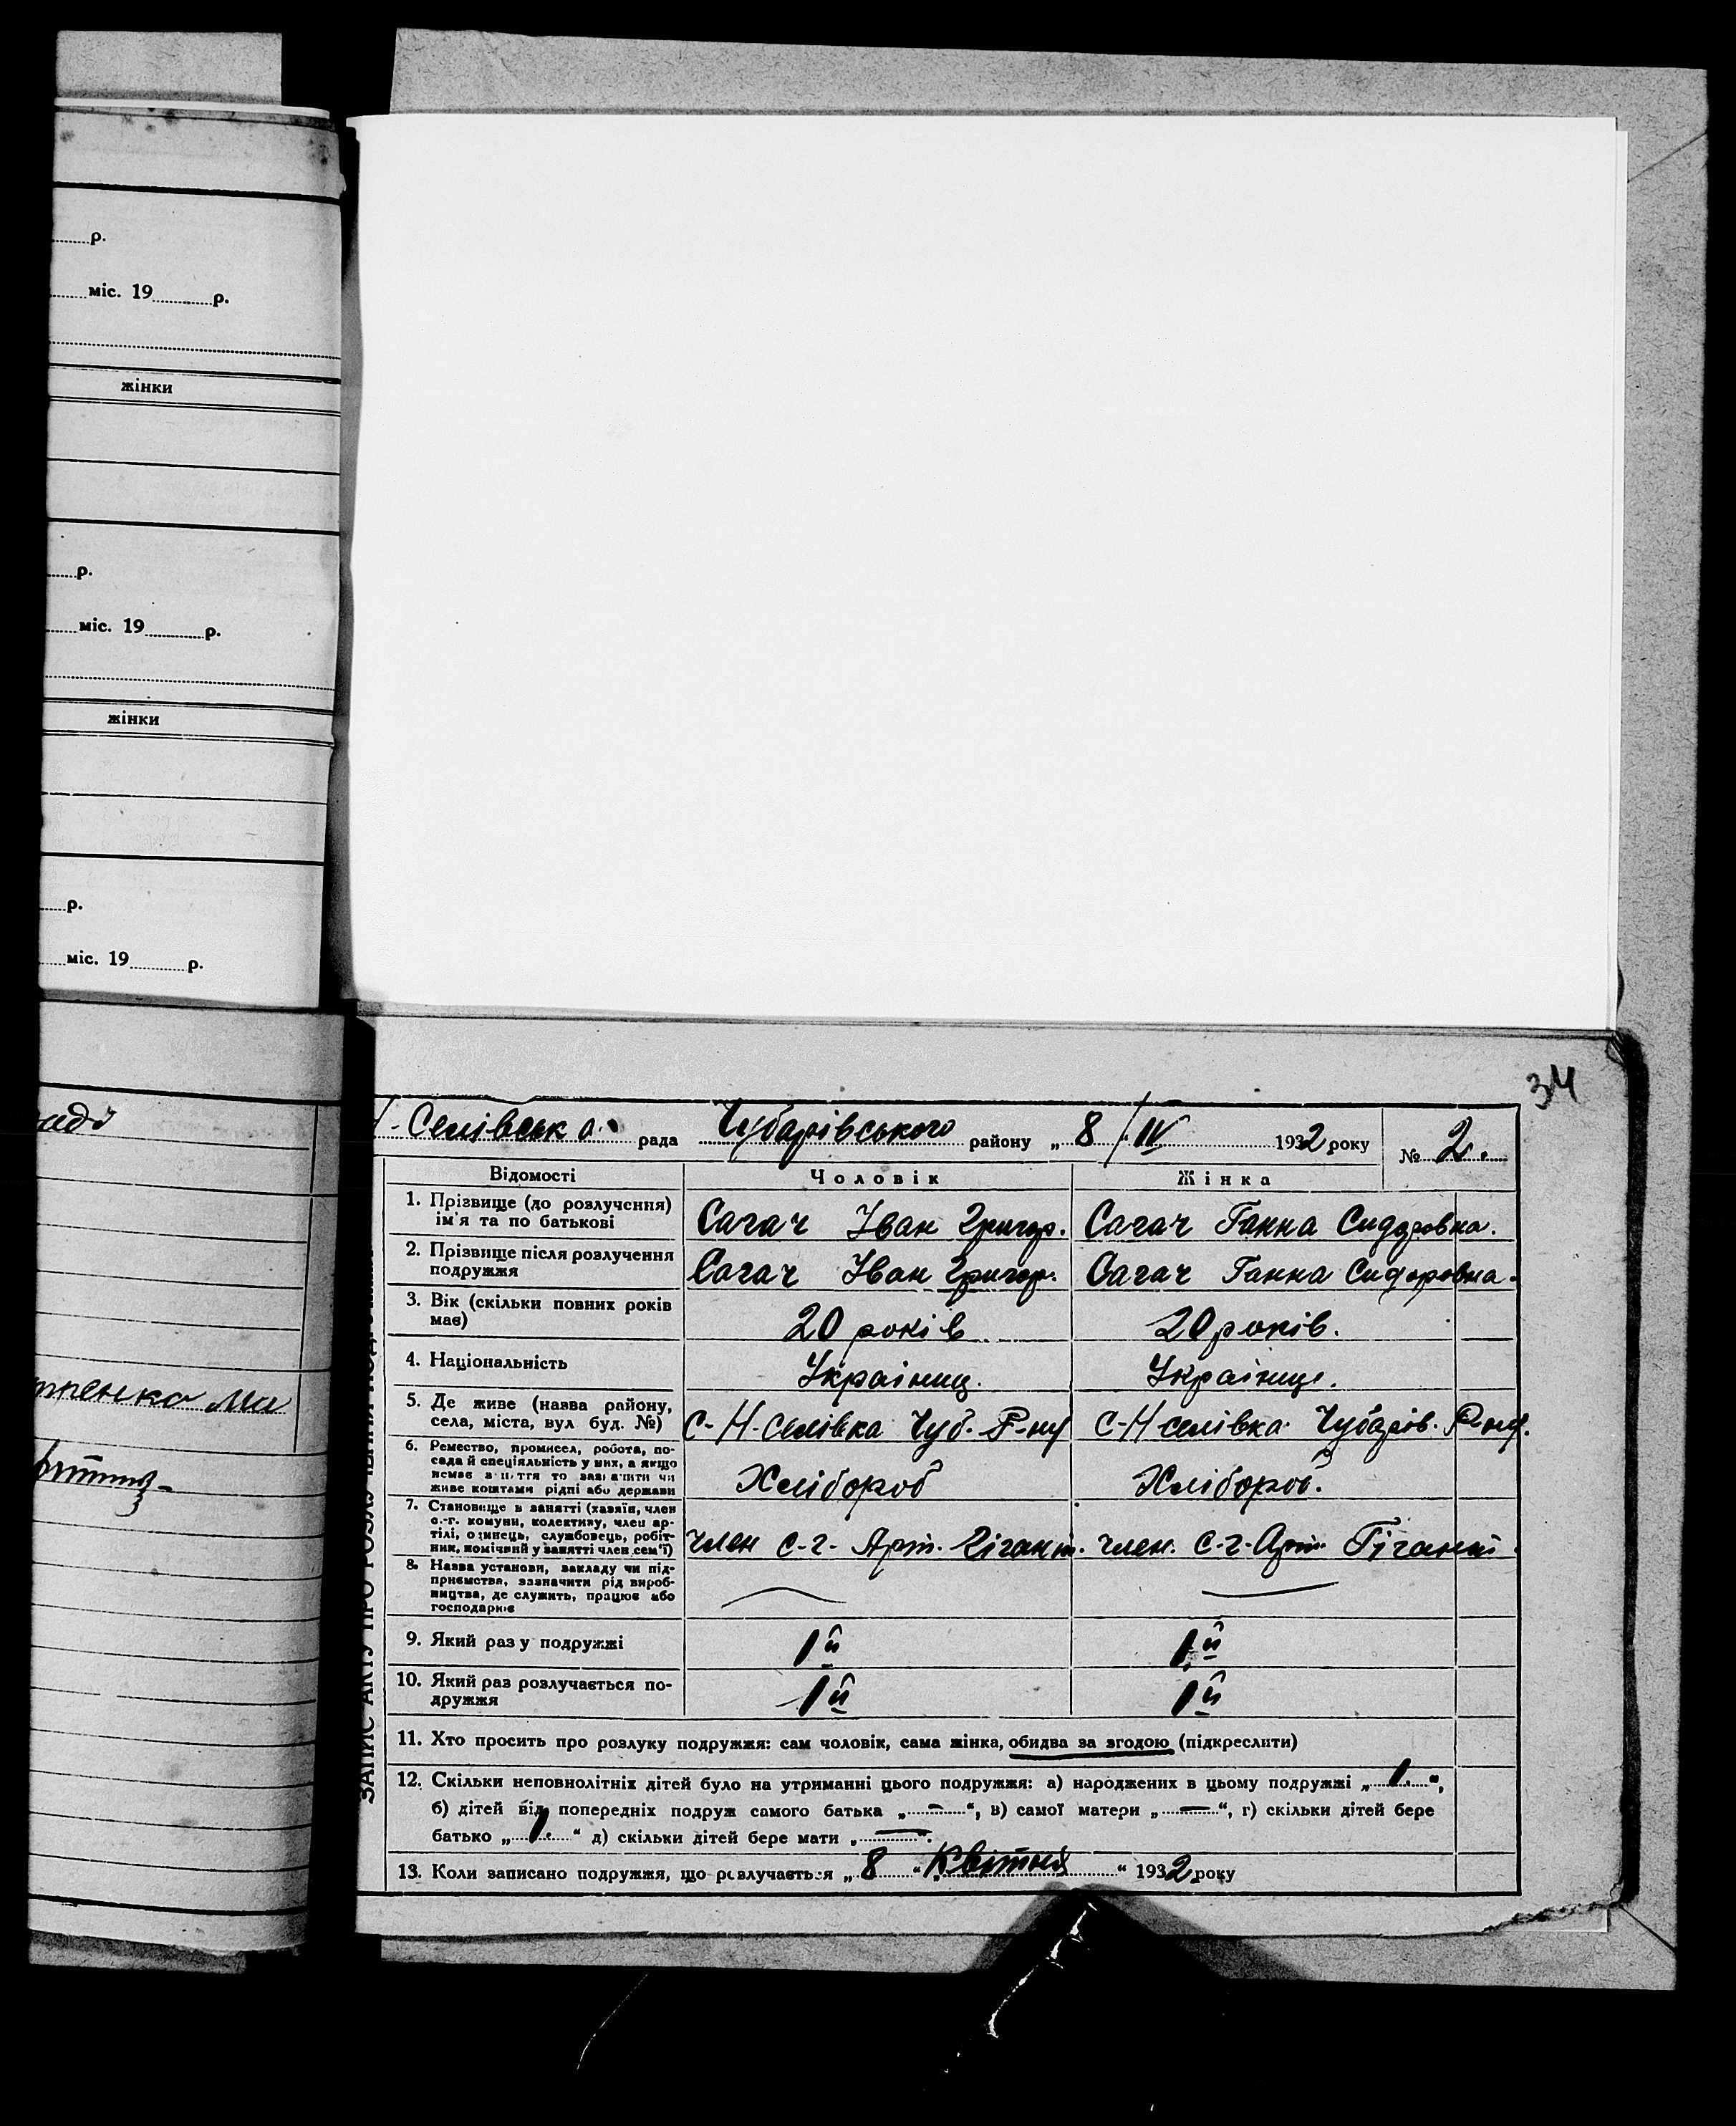 р.
міс. 19 р.
жінки
р.
міс. 19 р.
жінки
р.
міс. 19 р.
34
Н-Селівська рада Чубарівського району „ 8 / IV 1932 року № 2.
Відомості Чоловік Жінка
1. Прізвище (до розлучення) ім'я та по батькові Сагач Іван Григор. Сагач Ганна Сидоровна.
2. Прізвище після розлучення подружжя Сагач Іван Григор. Сагач Ганна Сидоровна.
3. Вік (скільки повних років має) 20 років 20 років.
4. Національність Українец. Українце.
5. Де живе (назва району, села, міста, вул буд. №) С-Н-Селівка Чуб. Р-ну С-Н селівка Чубарів. Р-ну.
6. Ремество, промисел, робота, по-
сада й спеціяльність у них, а якщо
немає заняття то зазначити чи
живе коштами рідні або держави Хлібороб Хлібороб.
7. Становище в занятті (хазяїн, член
с.-г. комуни, колективу, член ар-
тілі, одинець, службовець, робіт-
ник, помічний у занятті член сем'ї) член с-г. Арт. Гігант. член. с-г. Арт. Гігант.
8. Назва установи, закладу чи під-
приємства, зазначити рід вироб-
ництва, де служить, працює або
господарює
9. Який раз у подружжі 1й 1й
10. Який раз розлучається по-
дружжя 1й 1й
11. Хто просить про розлуку подружжя: сам чоловік, сама жінка, обидва за згодою (підкреслити)
12. Скільки неповнолітніх дітей було на утриманні цього подружжя: а) народжених в цьому подружжі „ 1. “,
б) дітей від попередніх подруж самого батька „ – “, в) самої матери „ — “, г) скільки дітей бере
батько „ 1. “ д) скільки дітей бере мати „ — “.
13. Коли записано подружжя, що розлучається „ 8 “ „ Квітня “ 1932 року